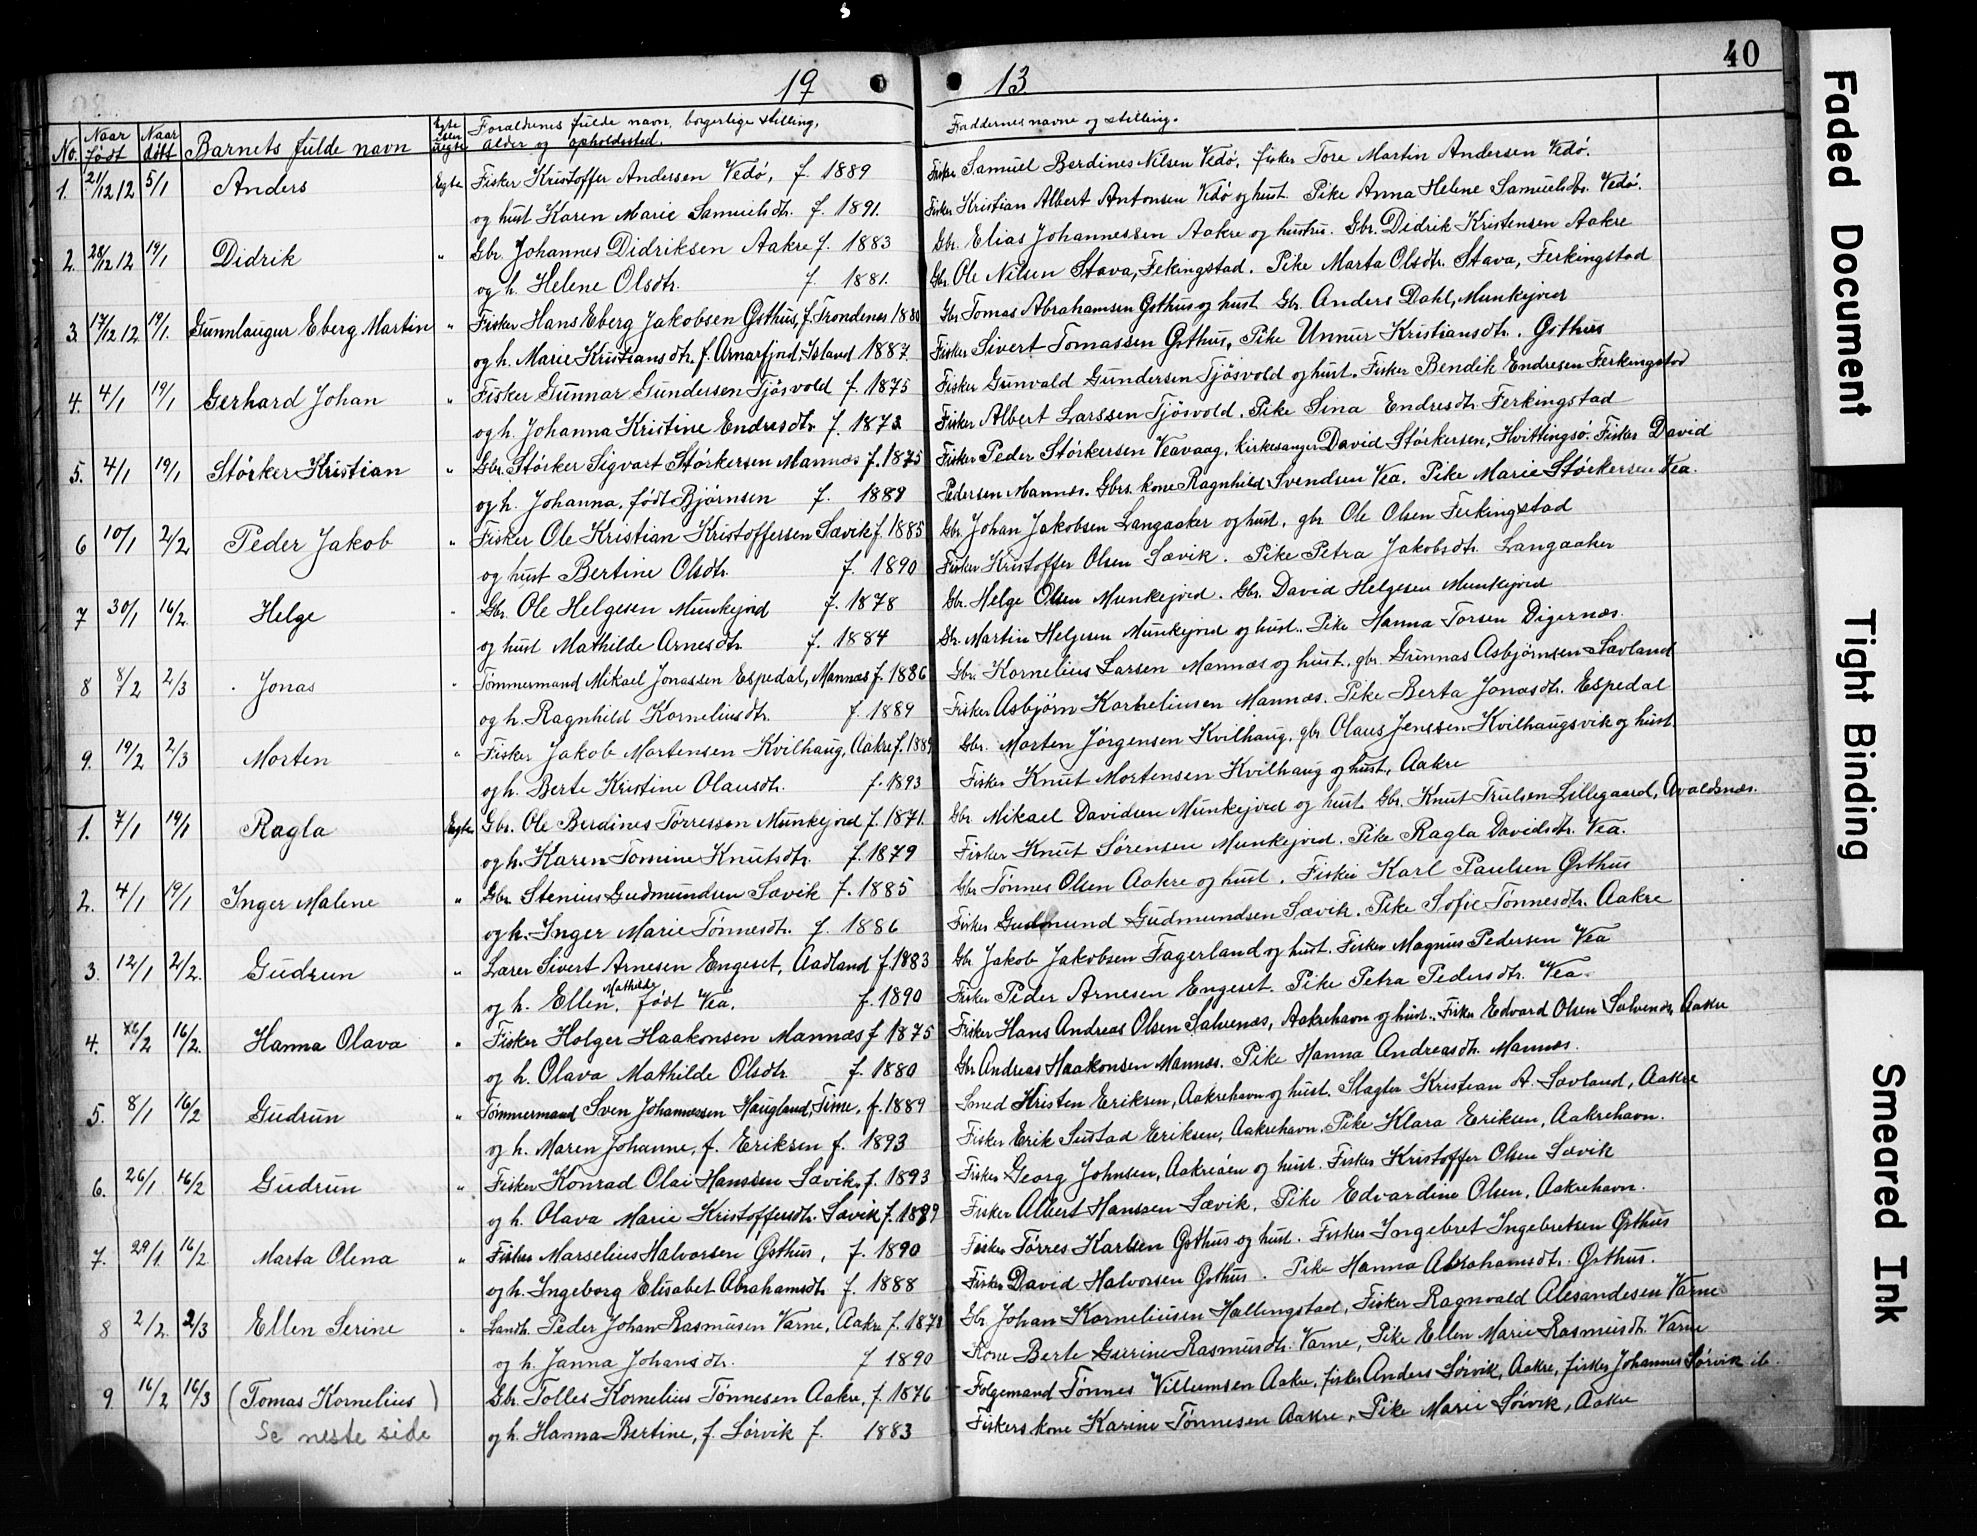 s
40
19 13
No. Naar født Naar døbt Barnets fulde navn Egte eller uegte Forældrenes fulde navn, borgerlige stilling, alder og opholdssted. Faddernes navne og stilling.
1. 21/12 12 5/1 Anders Egte Fisker Kristoffer Andersen Vedø, f. 1889 Fisker Samuel Berdines Nilsen Vedø, fisker Tore Martin Andersen Vedø.
og hust Karen Marie Samuelsdtr. f. 1891. Fisker Kristian Albert Antonsen Vedø og hust. Pike Anna Helene Samuelsdtr. Vedø.
2. 28/12 12 19/1 Didrik " Gbr. Johannes Didriksen Aakre f. 1883 Gbr. Elias Johannessen Aakre og hustru. Gbr. Didrik Kristensen Aakre
og h. Helene Olsdtr. f. 1881. Gbr. Ole Nilsen Stava, Fekingstad. Pike Marta Olsdtr. Stava, Ferkingstad
3. 17/12 12 19/1. Gunnlaugur Eberg Martin " Fisker Hans Eberg Jakobsen Østhus, f. Trondenes 1880 Gbr Tomas Abrahamsen Østhus og hust Gbr. Anders Dahl, Munkejord
og h. Marie Kristiansdtr. f. Arnarfjord, Island 1887. Fisker Sivert Tomassen Østhus, Pike Unnur Kristiansdtr. Østhus
4. 4/1 19/1 Gerhard Johan " Fisker Gunnar Gundersen Tjøsvold f. 1875 Fisker Gunvald Gundersen Tjøsvold og hust. Fisker Bendik Endresen Ferkingstad
og h. Johanna Kristine Endresdtr f. 1873 Fisker Albert Larssen Tjøsvold. Pike Sina Endresdtr. Ferkingstad
5. 4/1 19/1 Størker Kristian " Gbr. Størker Sigvart Størkersen Mannæs f. 1875 Fisker Peder Størkersen Veavaag, kirkesanger David Størkersen, Hvittingsø. Fisker David
og h. Johanna, født Bjørnsen f. 1889 Pedersen Mannæs. Gbrs. kone Ragnhild Svendsen Vea. Pike Marie Størkersen Vea.
6 10/1 2/2 Peder Jakob " Fisker Ole Kristian Kristoffersen Sævik f. 1885 Gbr. Johan Jakobsen Langaaker og hust, gbr. Ole Olsen Ferkingstad
og hust Bertine Olsdtr. f. 1890 Fisker Kristoffer Olsen Sævik. Pike Petra Jakobsdtr. Langaaker
7 30/1 16/2 Helge " Gbr. Ole Helgesen Munkejord f. 1878 Gbr. Helge Olsen Munkejord. Gbr. David Helgesen Munkejord
og hust Mathilde Arnesdtr. f. 1884 Gbr. Martin Helgesen Munkejord og hust. Pike Hanna Torsen Digernæs.
8 8/2 2/3 Jonas " Tømmermand Mikael Jonassen Espedal, Mannæs f. 1886 Gbr. Kornelius Larsen Mannæs og hust, gbr. Gunnas Asbjørnsen Sævland
og h. Ragnhild Korneliusdtr. f. 1889 Fisker Asbjørn Korneliusen Mannæs. Pike Berta Jonasdtr. Espedal
9. 19/2 2/3 Morten " Fisker Jakob Mortensen Kvilhaug, Aakre f. 1889 Gbr. Morten Jørgensen Kvilhaug, gbr Olaus Jenssen Kvilhaugsvik og hust
og h. Berte Kristine Olausdtr. f. 1893 Fisker Knut Mortensen Kvilhaug og hust, Aakre
1. 7/1 19/1 Ragla Egte Gbr. Ole Berdines Tørressen Munkejord f. 1871. Gbr. Mikael Davidsen Munkejord og hust. Gbr. Knut Trulsen Lillegaard, Avaldsnæs.
og h. Karen Tomine Knutsdtr. f. 1879 Fisker Knut Sørensen Munkejord. Pike Ragla Davidsdtr. Vea.
2. 4/1 19/1 Inger Malene " Gbr. Stenius Gudmundsen Sævik f. 1885 Gbr Tønnes Olsen Aakre og hust. Fisker Karl Paulsen Østhus
og h. Inger Marie Tønnesdtr. f. 1886 Fisker Gudmund Gudmundsen Sævik. Pike Sofie Tønnesdtr. Aakre
3. 12/1 2/2. Gudrun " Lærer Sivert Arnesen Engeset, Aadland f. 1883 Gbr Jakob Jakobsen Fagerland og hust. Fisker Magnus Pedersen Vea
og h. Ellen Mathilde, født Vea. f. 1890 Fisker Peder Arnesen Engeset. Pike Petra Pedersdtr. Vea.
4. /2 16/2. Hanna Olava " Fisker Holger Haakonsen Mannæs f 1875 Fisker Hans Andreas Olsen Salvenæs, Aakrehavn og hust. Fisker Edvard Olsen Salvenæs, Aakre
og h. Olava Mathilde Olsdtr. f. 1880 Gbr Andreas Haakonsen Mannæs. Pike Hanna Andreasdtr. Mannæs.
5. 8/1 16/2 Gudrun " Tømmermand Sven Johannessen Haugland, Time, f. 1889 Smed Kristen Eriksen, Aakrehavn og hust. Slagter Kristian A. Sævland, Aakre
og h. Maren Johanne, f. Eriksen f. 1893 Fisker Erik Sustad Eriksen, Aakrehavn. Pike Klara Eriksen, Aakrehavn.
6. 26/1 16/2 Gudrun " Fisker Konrad Olai Hanssen Sævik, f. 1893 Fisker Georg Johnsen, Aakreåen og hust. Fisker Kristoffer Olsen Sævik
og h. Olava Marie Kristoffersdtr. Sævik f. 1889 Fisker Albert Hanssen Sævik, Pike Edvardine Olsen, Aakrehavn.
7. 29/1. 16/2 Marta Olena " Fisker Marselius Halvorsen Østhus, f. 1890 Fisker Tørres Karlsen Østhus og hust. Fisker Ingebret Ingebretsen Østhus
og h. Ingeborg Elisabet Abrahamsdtr f. 1888 Fisker David Halvorsen Østhus. Pike Hanna Abrahamsdtr. Østhus.
8 2/2. 2/3 Ellen Serine " Landh. Peder Johan Rasmusen Varne, Aakre f. 1878 Gbr. Johan Korneliusen Hallingstad, Fisker Ragnvald Alesandesen Varne
og h. Janna Johansdtr. f 1890 Kone Berte Serrine Rasmusdtr. Varne, Pike Ellen Marie Rasmusdtr. Varne
9. 16/2 16/3 (Tomas Kornelius) Gbr. Tolles Kornelius Tønnesen Aakre, f. 1876 Følgemand Tønnes Villumsen Aakre, fisker Anders Sørvik, Aakre, fisker Johannes Sørvik ib.
Se neste side og h. Hanna Bertine, f. Sørvik f. 1883 Fiskers kone Karine Tønnesen Aakre, Pike Marie Sørvik, Aakre
Faded Document
Tight Binding
Smeared Ink